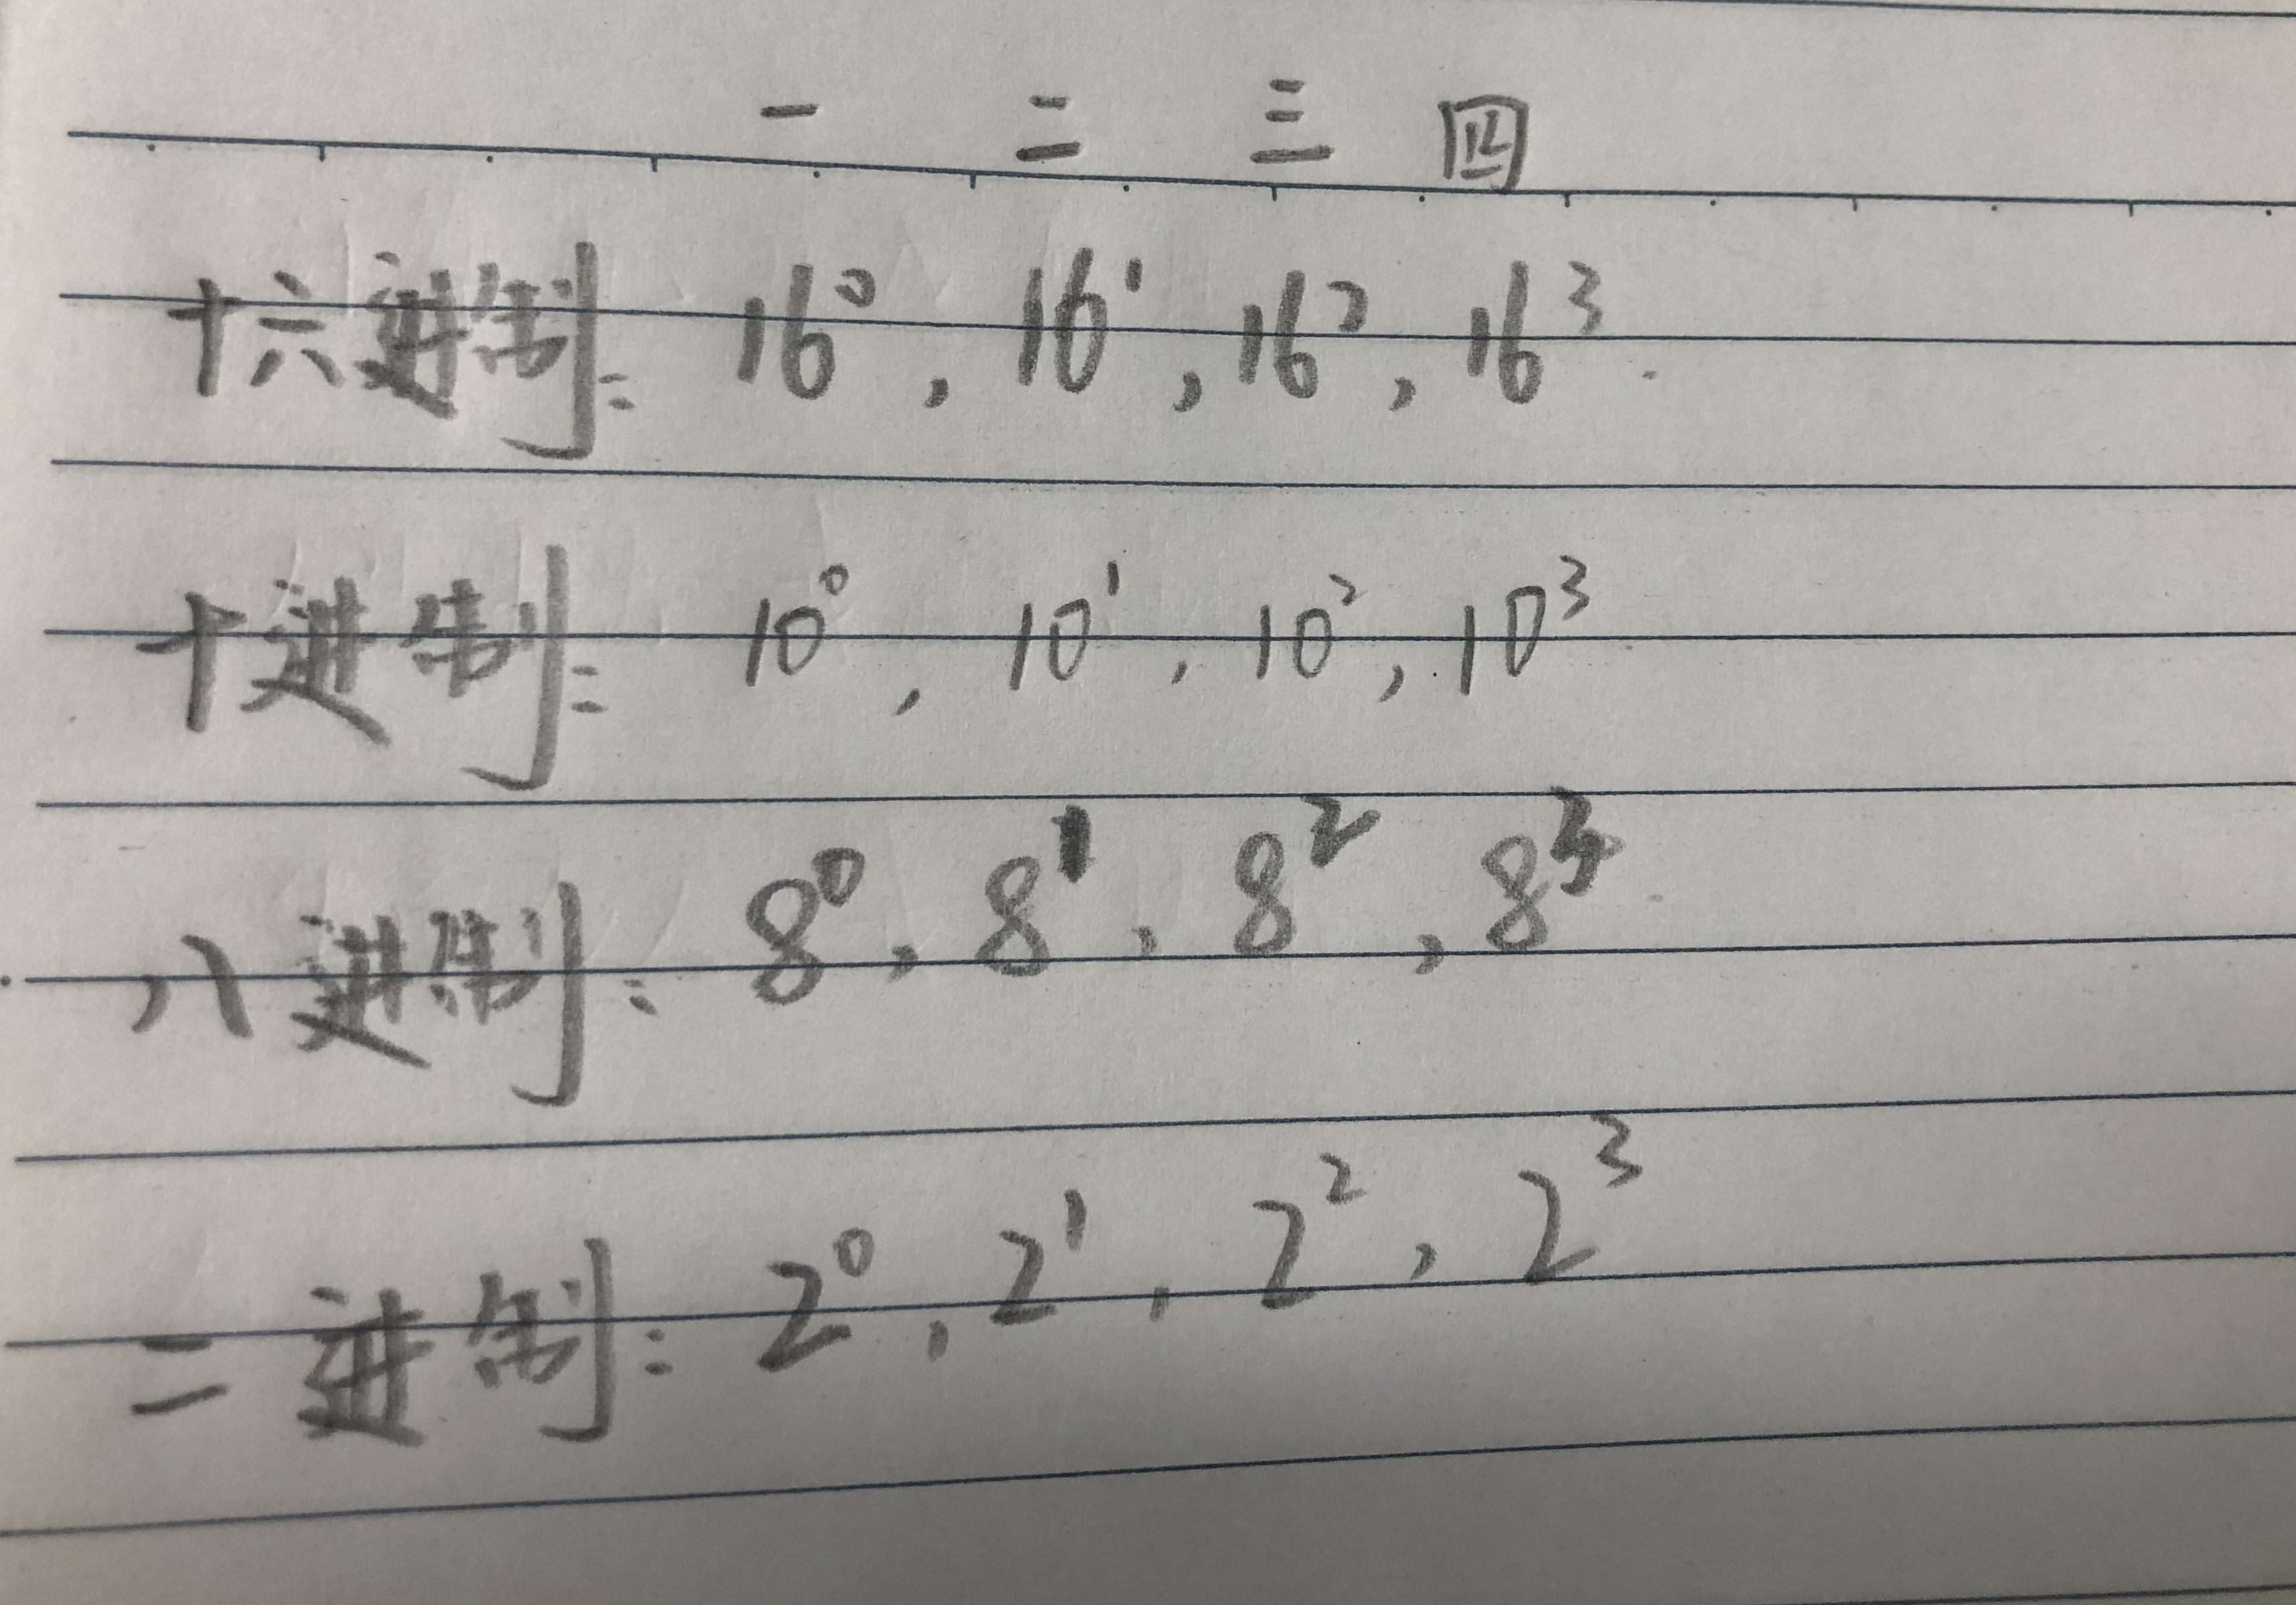 一 二 三 四
十六进制: 16⁰, 16¹, 16², 16³.
十进制: 10⁰, 10¹, 10², 10³
八进制: 8⁰, 8¹, 8², 8³
二进制: 2⁰, 2¹, 2², 2³